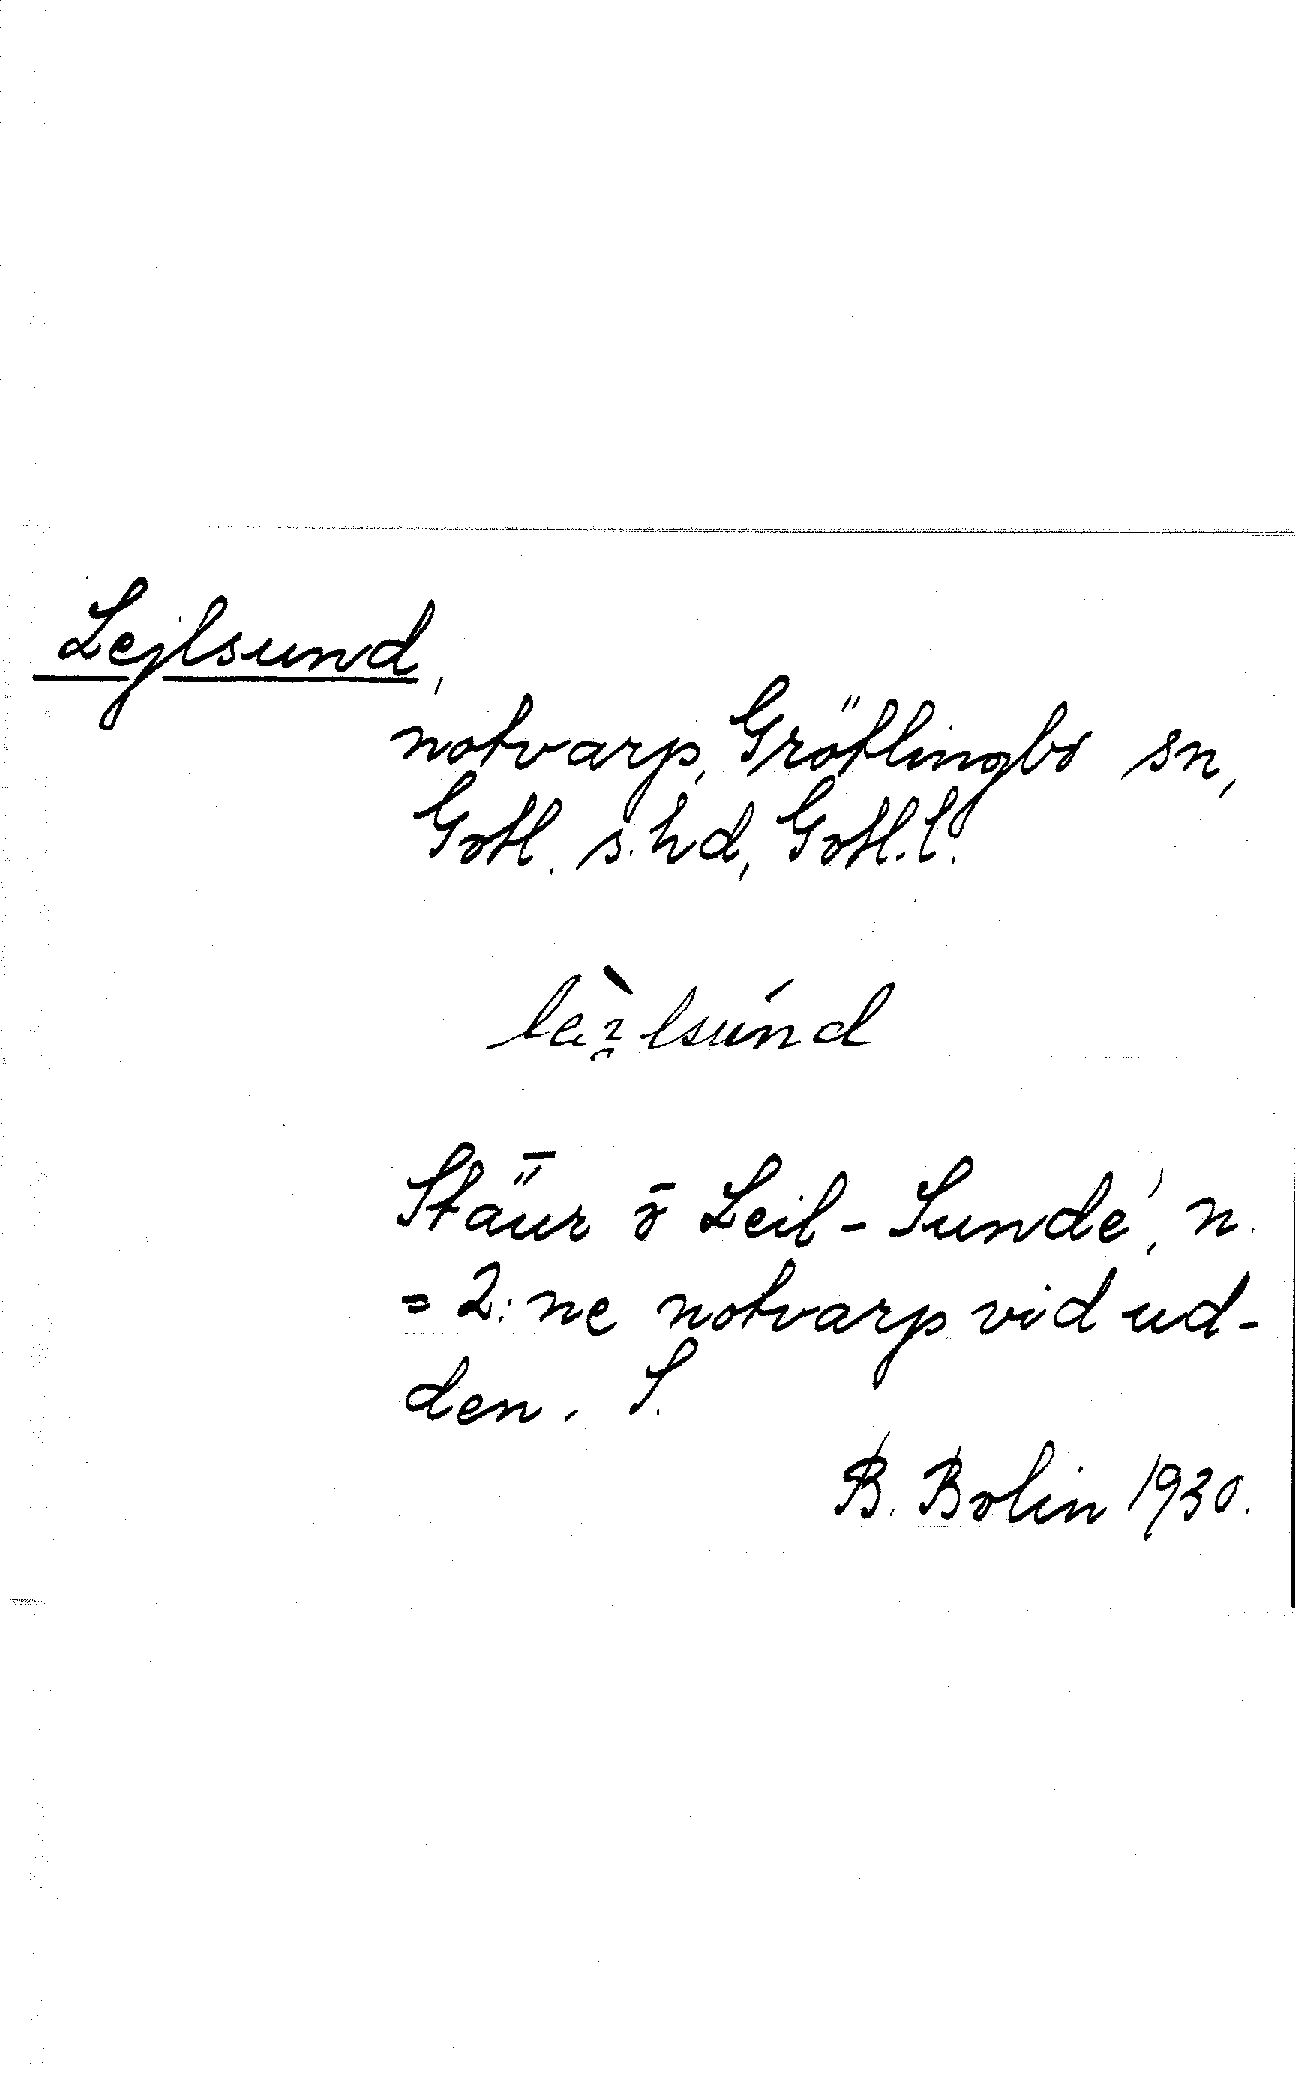 Lejlsund,
notvarp, Grötlingbo sn,
Gotl. s. hd, Gotl. l.
lei̯lsund
Stäur o Leil-Sunde, n.
= 2:ne notvarp vid ud-
den. S.
B. Bolin 1930.